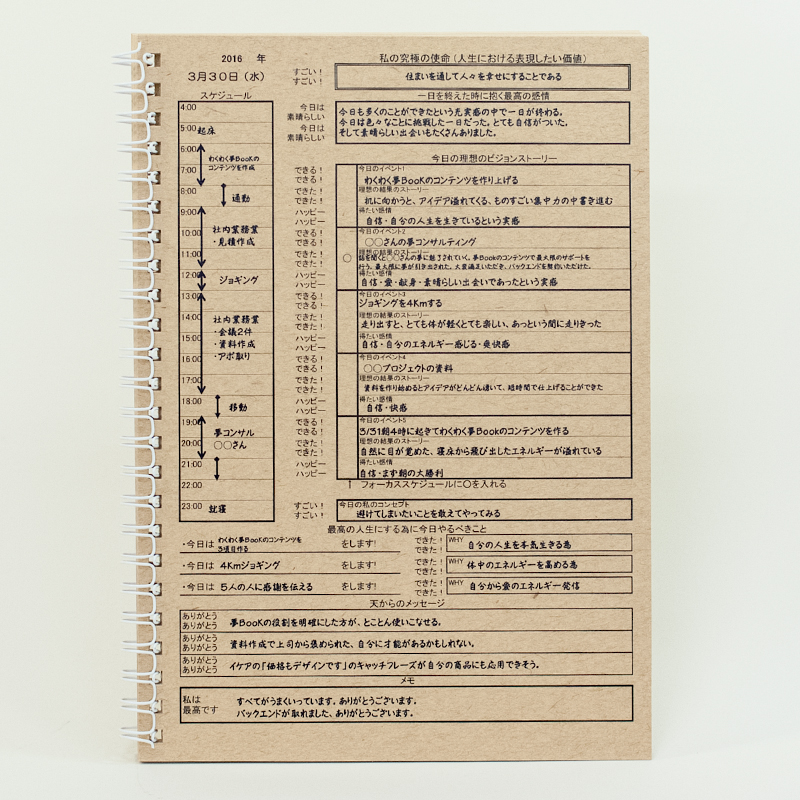 2016 年
3月30日（水）
スケジュール
4:00
5:00 起床
6:00
わくわく夢BooKの
コンテンツを作成
7:00
8:00
通勤
9:00
社内業務業
10:00
・見積作成
11:00
12:00
ジョギング
13:00
14:00
社内業務業
・会議2件
15:00
・資料作成
16:00
・アポ取り
17:00
18:00
移動
19:00
夢コンサル
20:00
〇〇さん
21:00
22:00
23:00 就寝
私の究極の使命（人生における表現したい価値）
すごい！
すごい！
住まいを通して人々を幸せにすることである
一日を終えた時に抱く最高の感情
今日は
素晴らしい
今日は
素晴らしい
今日も多くのことができたという充実感の中で一日が終わる。
今日は色々なことに挑戦した一日だった。とても自信がついた。
そして素晴らしい出会いもたくさんありました。
今日の理想のビジョンストーリー
できる！
できる！
できた！
できた！
ハッピー
ハッピー
今日のイベント1
わくわく夢BooKのコンテンツを作り上げる
理想の結果のストーリー
机に向かうと、アイデア溢れてくる、ものすごい集中力の中書き進む
得たい感情
自信・自分の人生を生きているという実感
できる！
できる！
できた！
できた！
ハッピー
ハッピー
〇
今日のイベント2
〇〇さんの夢コンサルティング
理想の結果のストーリー
話を聞くと〇〇さんの夢に魅了されていく、夢Bookのコンテンツで最大限のサポートを
行う。最大限に夢が引き出された、大変満足いただき、バックエンドを契約いただけた。
得たい感情
自信・愛・献身・素晴らしい出会いであったという実感
できる！
できる！
できた！
できた！
ハッピー
ハッピー
今日のイベント3
ジョギングを4Kmする
理想の結果のストーリー
走り出すと、とても体が軽くとても楽しい、あっという間に走りきった
得たい感情
自信・自分のエネルギー感じる・爽快感
できる！
できる！
できた！
できた！
ハッピー
ハッピー
今日のイベント4
〇〇プロジェクトの資料
理想の結果のストーリー
資料を作り始めるとアイデアがどんどん湧いて、短時間で仕上げることができた
得たい感情
自信・快感
できる！
できる！
できた！
できた！
ハッピー
ハッピー
今日のイベント5
3/31朝4時に起きてわくわく夢Bookのコンテンツを作る
理想の結果のストーリー
自然に目が覚めた、寝床から飛び出したエネルギーが溢れている
得たい感情
自信・まず朝の大勝利
↑ フォーカススケジュールに〇を入れる
すごい！
すごい！
今日の私のコンセプト
避けてしまいたいことを敢えてやってみる
最高の人生にする為に今日やるべきこと
・今日は わくわく夢BooKのコンテンツを
3項目作る
をします！
できた！
できた！
WHY 自分の人生を本気生きる為
・今日は 4Kmジョギング をします！
できた！
できた！
WHY 体中のエネルギーを高める為
・今日は 5人の人に感謝を伝える をします！
できた！
できた！
WHY 自分から愛のエネルギー発信
天からのメッセージ
ありがとう
ありがとう
夢BooKの役割を明確にした方が、とことん使いこなせる。
ありがとう
ありがとう
資料作成で上司から褒められた、自分に才能があるかもしれない。
ありがとう
ありがとう
イケアの「価格もデザインです」のキャッチフレーズが自分の商品にも応用できそう。
メモ
私は
最高です
すべてがうまくいっています。ありがとうございます。
バックエンドが取れました、ありがとうございます。